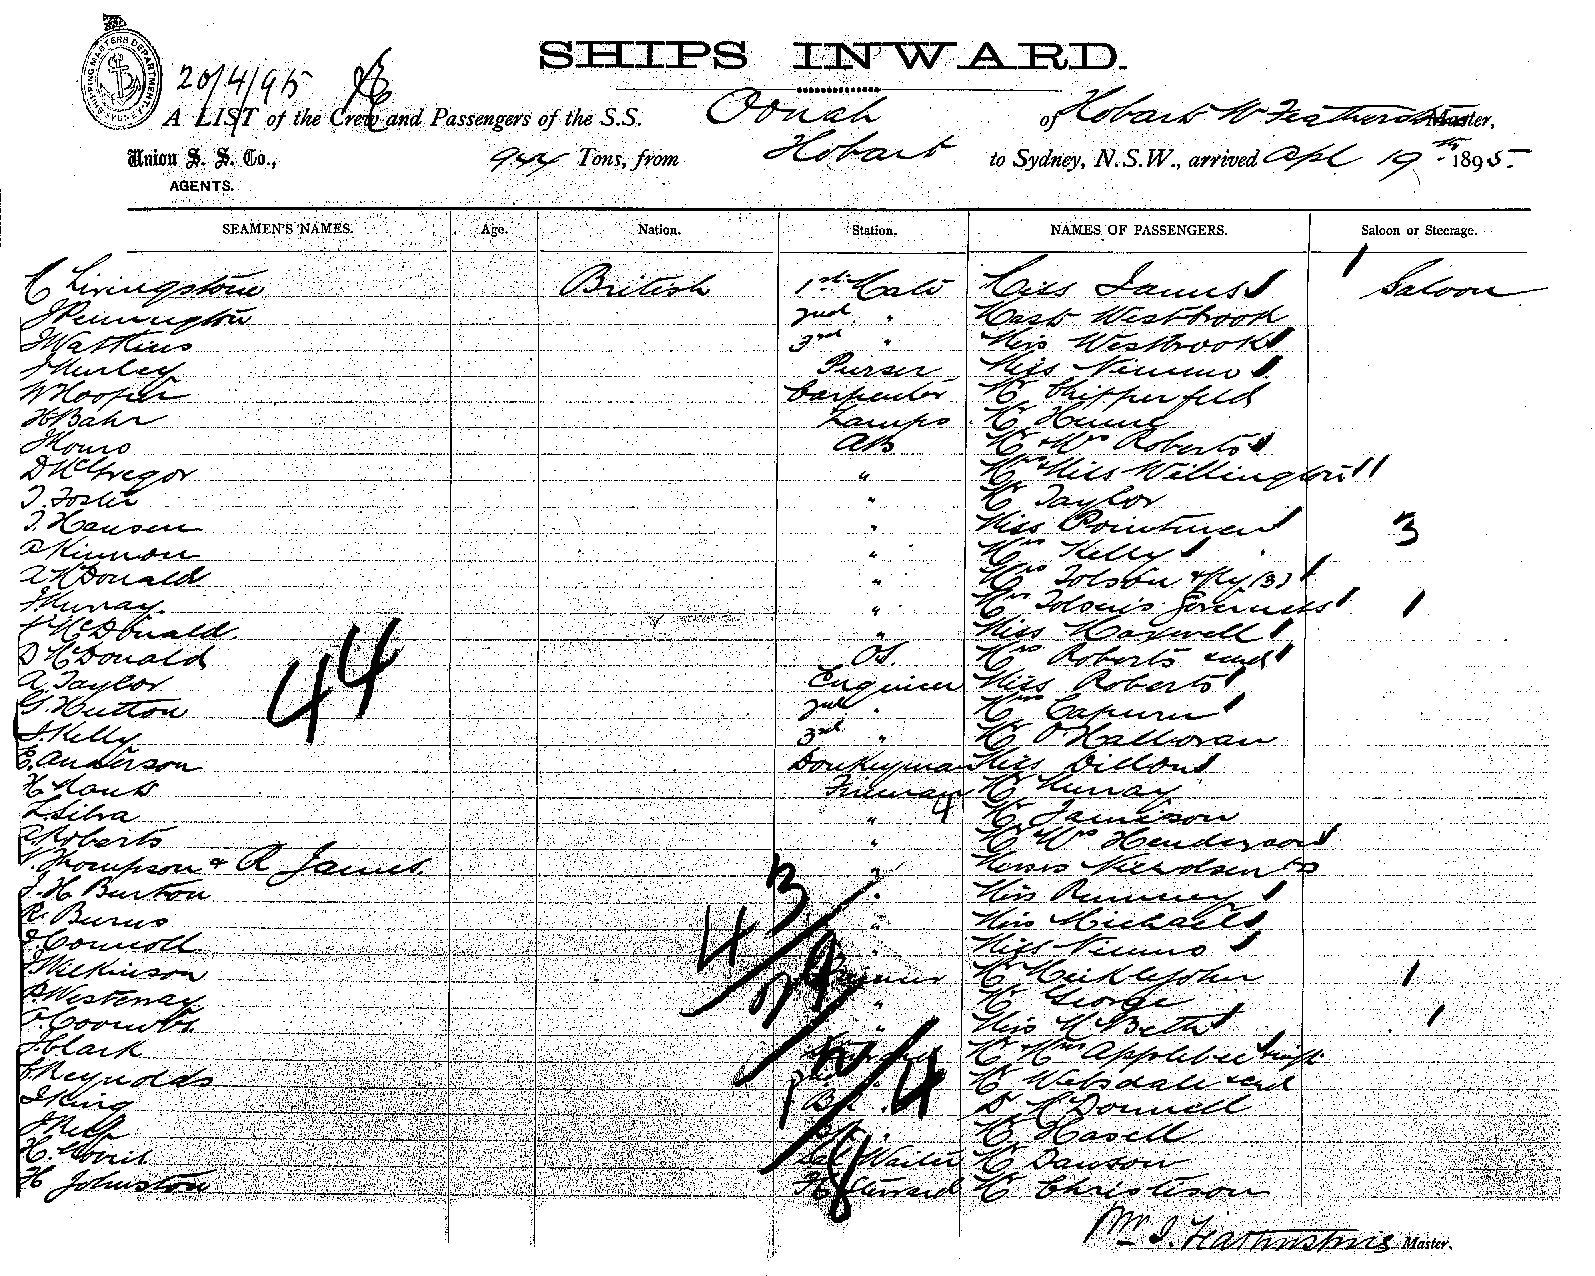 SHIPS INWARD.
20/4/95
A LIST of the Crew and Passengers of the S.S. Oonah of Hobart W Featherstone Master,
Union S. S. Co., 944 Tons, from Hobart to Sydney, N.S.W., arrived Apl 19th 1895
AGENTS.
SEAMEN'S NAMES. Age. Nation. Station. NAMES OF PASSENGERS. Saloon or Steerage.
C Livingstone British 1st Mate Miss James Saloon
J Pennington 2nd " Mast Westbrook
J Watkins 3rd " Miss Westbrook
J Hurley Purser Miss Nimmo
W Hooper Carpenter Mr Chipperfeld
H Bahr Lamps Mr
AB Mr & Mrs Roberts
D McGregor " Mr & Miss Wellington
T. Foster " Mr Taylor
T. Hansen " Miss 3
A Kinnon " Mrs Kelly
A McDonald " Mrs Tolson & fy (3)
J Murray " Mrs Tolson's Governess
McDonald " Miss Maxwell
D McDonald OS. Mrs Roberts
A Taylor Engineer Miss Roberts
G. Hutton 2nd " Mrs
J. Kelly 3rd " Mr O'Halloran
E. Anderson Donkeyman Miss Dillon
H Fireman Mr Murray
L. Silva " Mr Jamieson
A Roberts " Mr Mrs Henderson
Thompson & R James " Nicholson
J. H Burton " Miss Rummey
R. Burns " Miss Michaels
J. Connoll " Miss Nimmo
J Wilkinson Mr Micklejohn
P. Westenay " Mr George
Coombs " Miss McBeth
J. Clark Mr Mrs Applebee
J Reynolds Mr Websdale
J. King D McDonnell
J Kelly Mr Hasell
H. Waiter Mr Dawson
H Johnston Steward Mr Christison
44
43
Master.